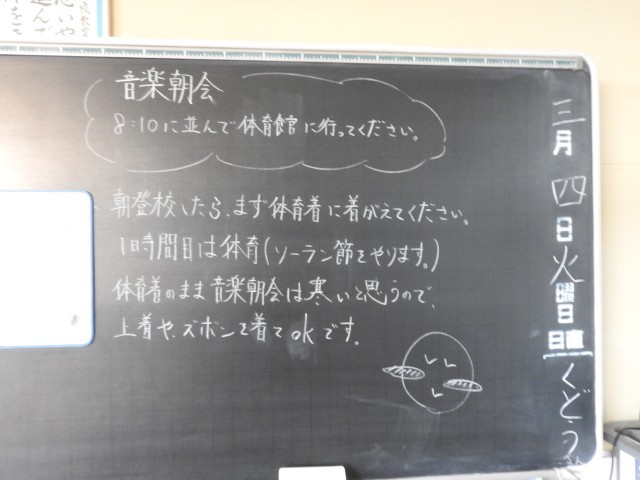 音楽朝会
8:10に並んで体育館に行ってください。
朝登校したら、まず体育着に着がえてください。
1時間目は体育(ソーラン節をやります。)
体育着のまま音楽朝会は寒いと思うので、
上着や、ズボンを着てokです。
三月四日火曜日
日直 くどう